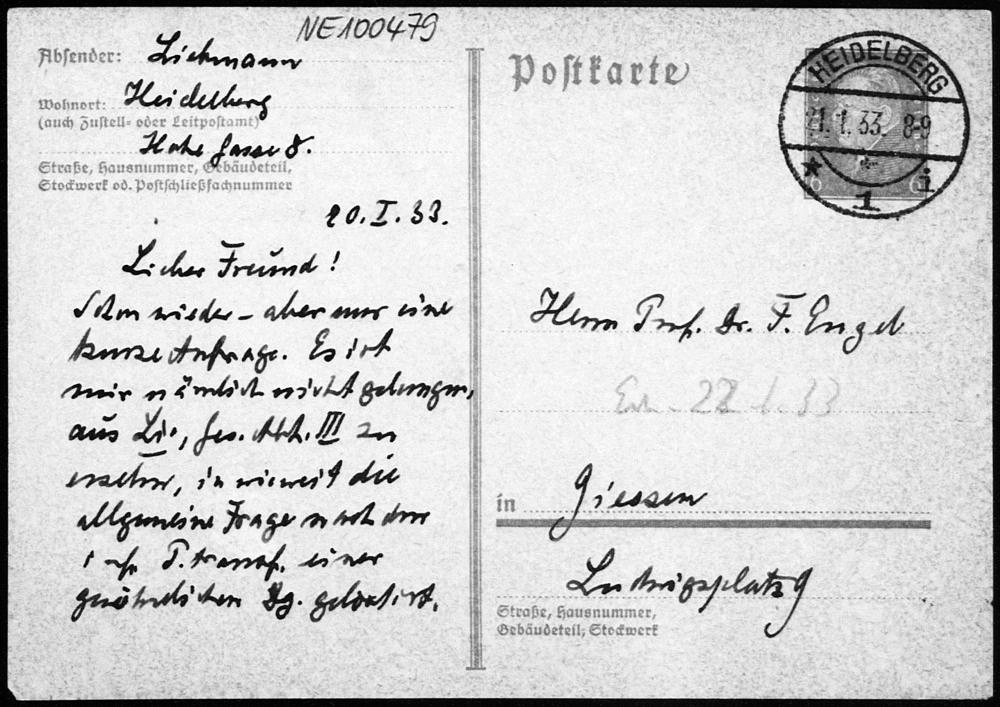 NE100479
Absender: Liebmann
Wohnort: Heidelberg
(auch Zustell- oder Leitpostamt)
Hohe Gasse 8.
Straße, Hausnummer, Gebäudeteil,
Stockwerk od. Postschließfachnummer
20.I.33.
Lieber Freund!
Schon wieder – aber nur eine
kurze Anfrage. Es ist
mir nämlich nicht gelungen,
aus Lie, Ges. Abh. III zu
ersehen, in wieweit die
allgemeine Frage nach den
T. transf. einer
gewöhnlichen Dg. gelöst ist.
Postkarte
HEIDELBERG
21.1.33. 8-9
* 1 i
6 6
Herrn Prof. Dr. F. Engel
22 1.33
in Giessen
Ludwigsplatz 9
Straße, Hausnummer,
Gebäudeteil, Stockwerk